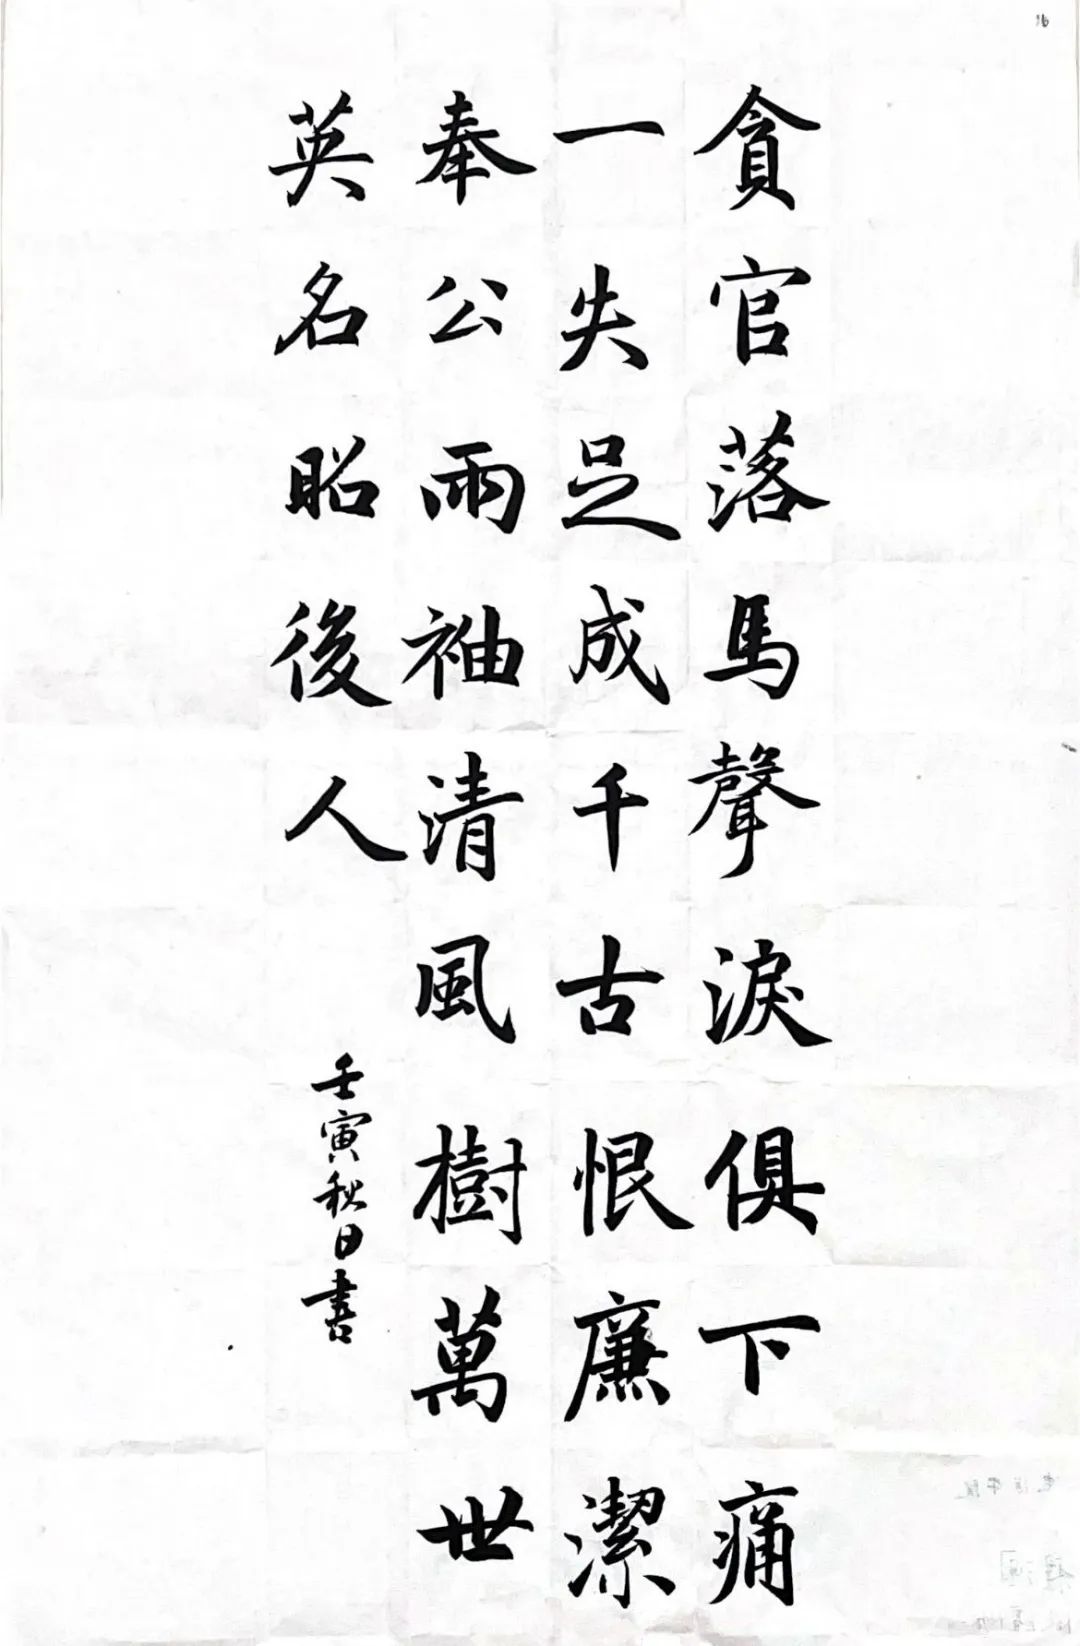 貪官落馬聲淚俱下痛
一失足成千古恨廉潔
奉公兩袖清風樹萬世
英名昭後人
壬寅秋日書